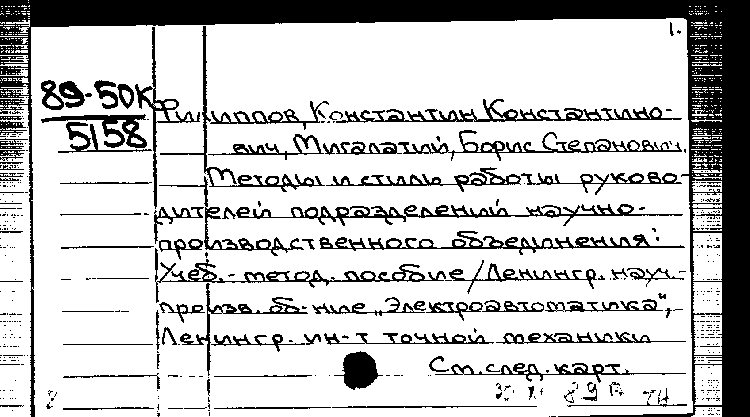 1.
89-50К
5158
Филиппов, Константин Константино-
вич, Мигалатий, Борис Степанович.
Методы и стиль работы руково-
дителей подразделений научно-
производственного объединения:
Учеб.-метод. пособие / Ленингр. науч.-
произв. об-ние „Электроавтоматика“,
Ленингр. ин-т точной механики
См. след. карт.